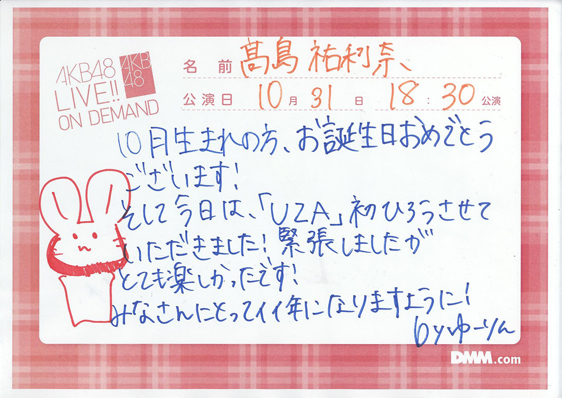 AKB48
LIVE!!
ON DEMAND
AKB
48
名前 髙島祐利奈、
公演日 10月31日 18:30公演
10月生まれの方、お誕生日おめでとう
ございます!
そして今日は、「UZA」初ひろうさせて
いただきました!緊張しましたが
とても楽しかったです!
みなさんにとってイイ年になりますように!
byゆーりん
DMM.com